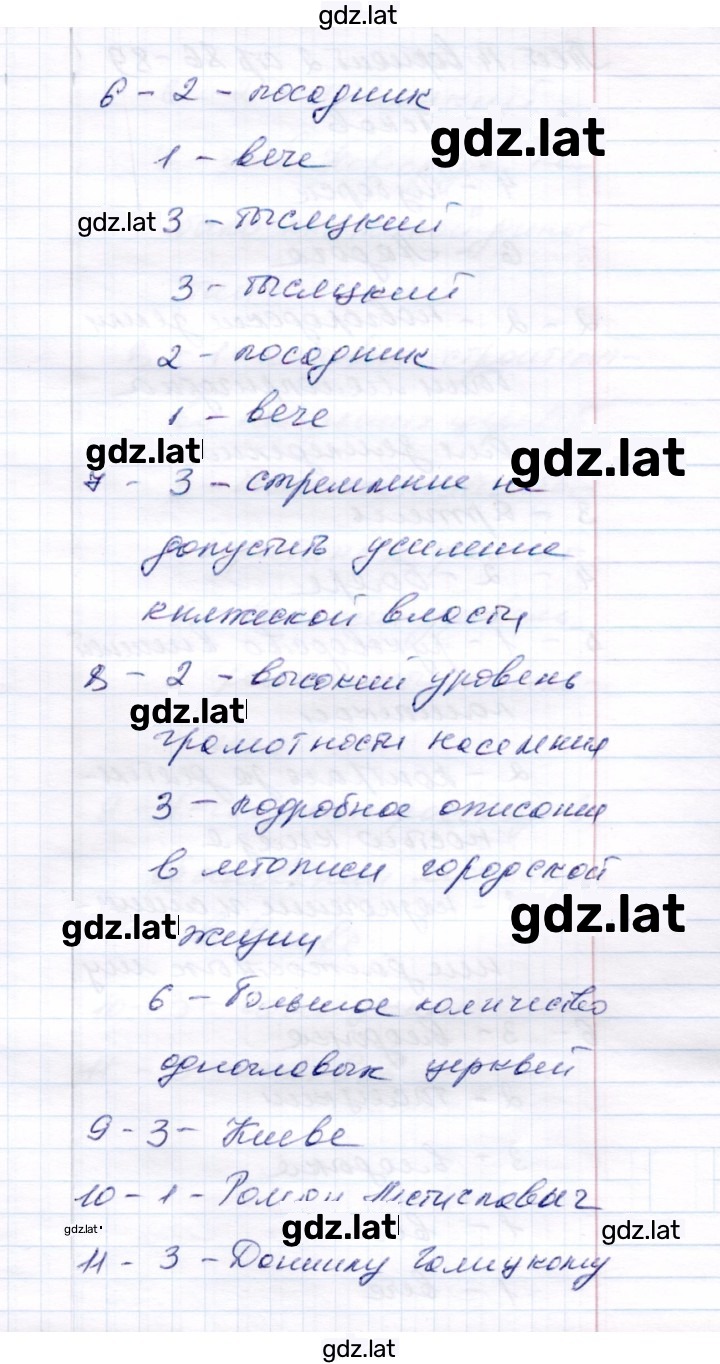 gdz.lat
6 - 2 - посадник
gdz.lat
1 - вече
gdz.lat 3 - тысяцкий
3 - тысяцкий
2 - посадник
1 - вече
gdz.lat gdz.lat
7 - 3 - стремление не
допустить усиление
княжеской власти
8 - 2 - высокий уровень
gdz.lat
грамотности населения
3 - подробное описание
в летописи городской
gdz.lat
gdz.lat жизни
6 - большое количество
одноглавых церквей
9 - 3 - Киеве
10 - 1 - Роман Мстиславыч
gdz.lat gdz.lat gdz.lat
11 - 3 - Даниилу Галицкому
gdz.lat